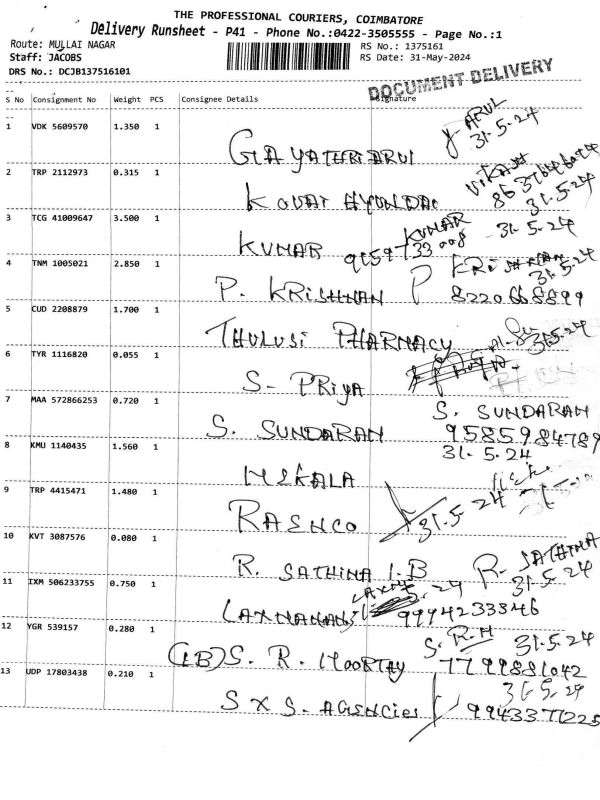 THE PROFESSIONAL COURIERS, COIMBATORE
Delivery Runsheet - P41 - Phone No.:0422-3505555 - Page No.:1
Route: MULLAI NAGAR
RS No.: 1375161
Staff: JACOBS
RS Date: 31-May-2024
DRS No.: DCJB137516101
DOCUMENT DELIVERY
S No Consignment No Weight PCS Consignee Details Signature
1 VDK 5609570 1.350 1
ARUL
31.5.24
GAYATHRI ARUL
2 TRP 2112973 0.315 1
31.5.24
KOVAI HYUNDAI
3 TCG 41009647 3.500 1
KUMAR 31.5.24
KUMAR 9659733008
4 TNM 1005021 2.850 1
KRISHNAN 31.5.24
P. KRISHNAN P 8220668899
5 CUD 2208879 1.700 1
THULUSI PHARMACY 31.5.24
6 TYR 1116820 0.055 1
S- PRIYA
7 MAA 572866253 0.720 1
S. SUNDARAN
S. SUNDARAN 9585984789
8 KMU 1140435 1.560 1
31.5.24
MEKALA
9 TRP 4415471 1.480 1
RASHCO 31.5.24
10 KVT 3087576 0.080 1
R. SATHINA I.B R. SATHINA
31.5.24
11 IXM 506233755 0.750 1
LAXMANAN 9994233346
12 YGR 539157 0.280 1
S. R.M 31.5.24
(IB) S. R. MOORTHY 7799881042
13 UDP 17803438 0.210 1
31.5.24
S X S. AGENCIES 9943371225